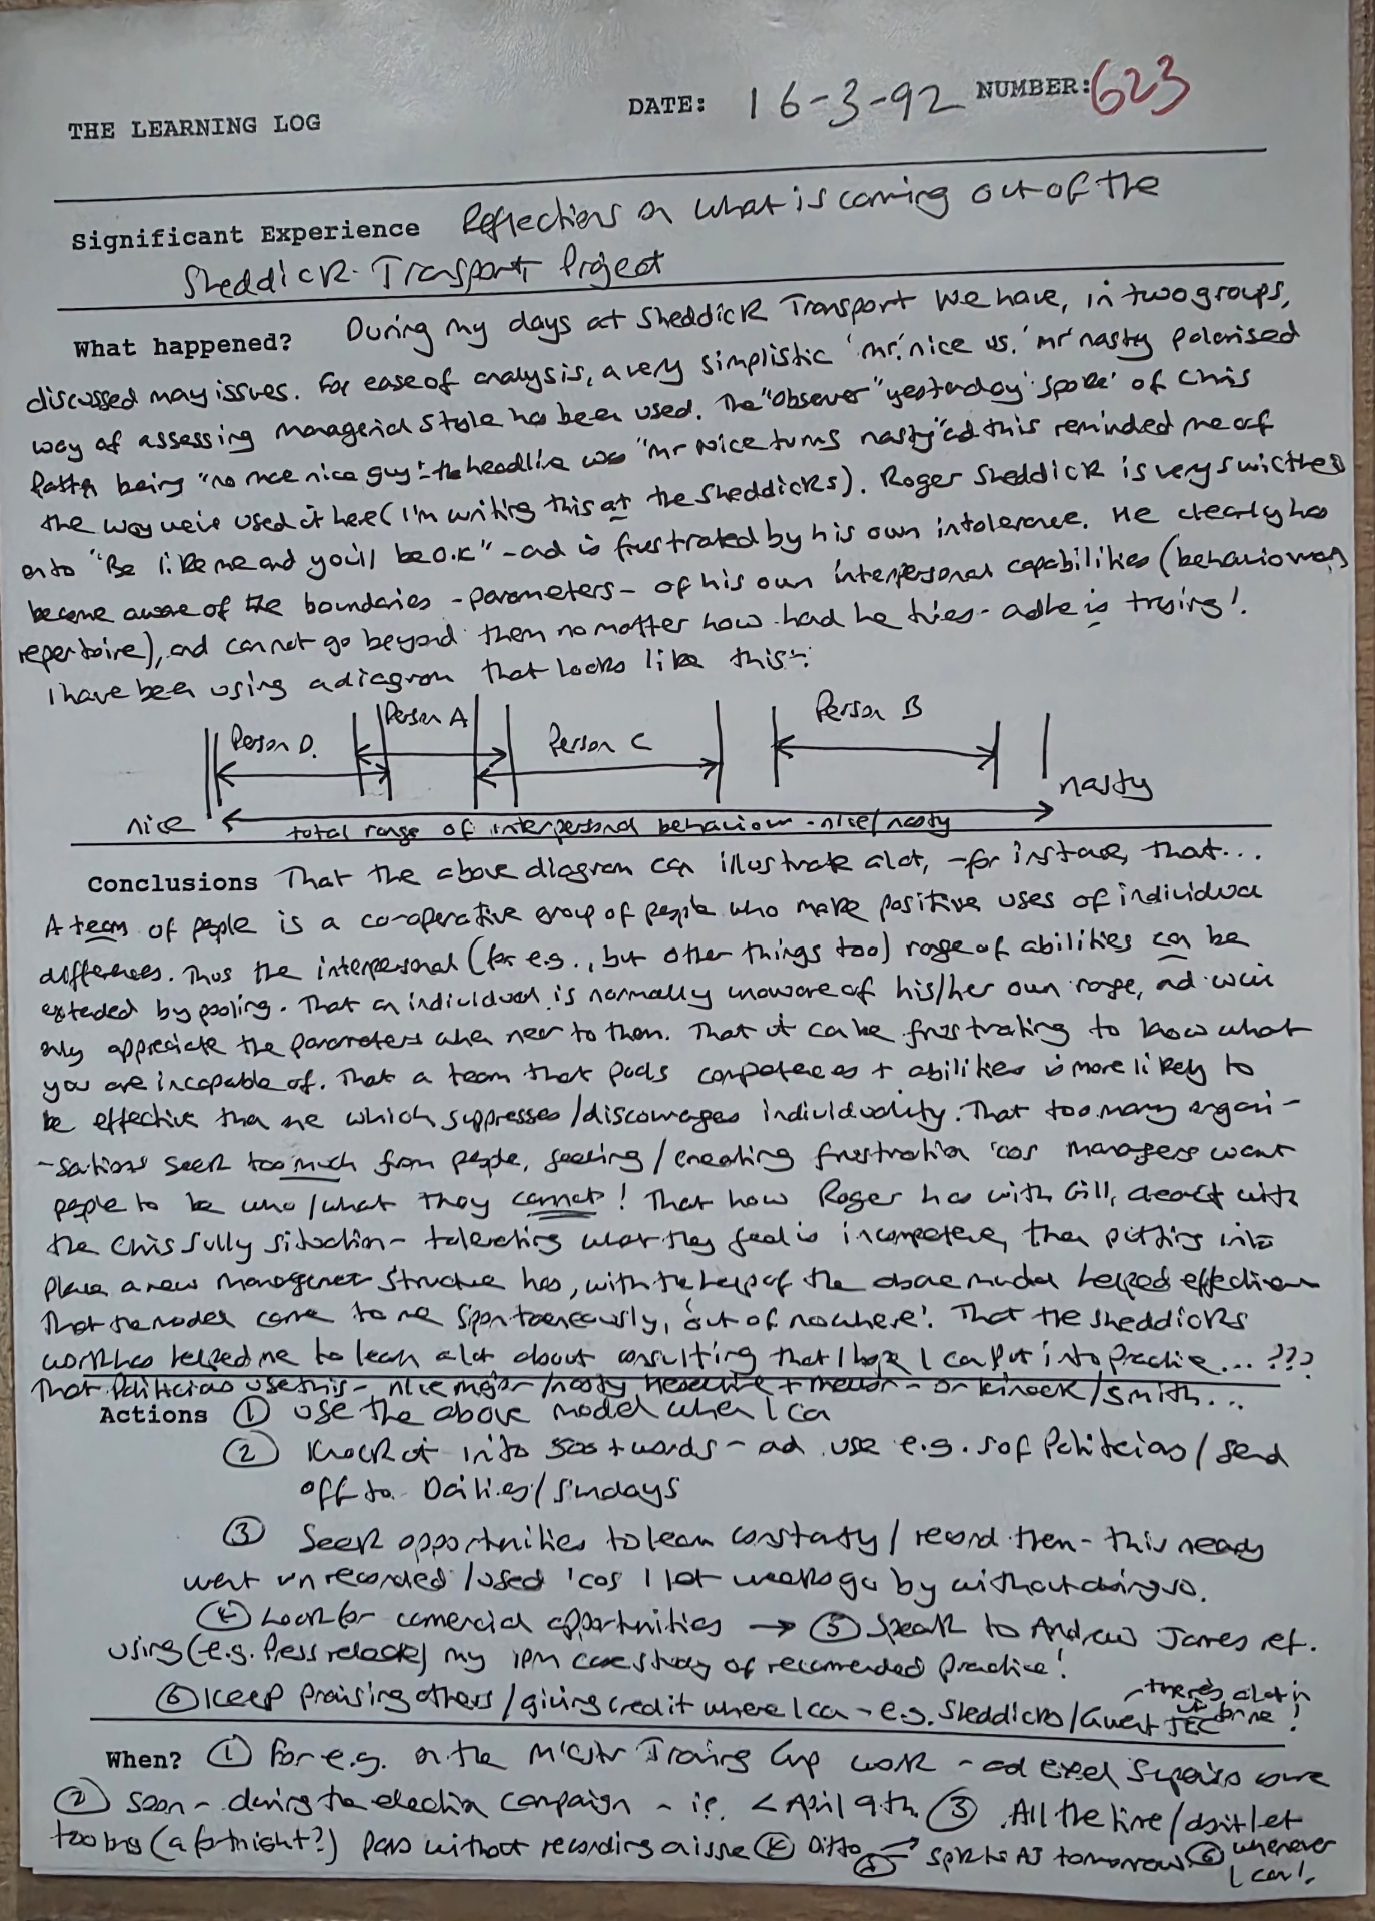 THE LEARNING LOG
DATE: 16-3-92 NUMBER: 623
Significant Experience Reflections on what is coming out of the
Sheddick Transport Project
What happened? During my days at Sheddick Transport we have, in two groups,
discussed many issues. For ease of analysis, a very simplistic 'mr.' nice vs. 'mr' nasty polarised
way of assessing managerial style has been used. The "Observer" yesterday 'spoke' of Chris
Patten being "no more nice guy" - the headline was "mr nice turns nasty" and this reminded me of
the way we've used it here (I'm writing this at the Sheddicks). Roger Sheddick is very switched
onto "Be like me and you'll be o.k" - and is frustrated by his own intolerance. He clearly has
become aware of the boundaries - parameters - of his own interpersonal capabilities (behavioural
repertoire), and cannot go beyond them no matter how hard he tries - and he is trying!
I have been using a diagram that looks like this:
Person D. Person A Person C Person B
nice nasty
total range of interpersonal behaviour - nice/nasty
Conclusions That the above diagram can illustrate a lot, - for instance, that...
A team of people is a co-operative group of people who make positive uses of individual
differences. Thus the interpersonal (for e.g., but other things too) range of abilities can be
extended by pooling. That an individual is normally unaware of his/her own range, and will
only appreciate the parameters when near to them. That it can be frustrating to know what
you are incapable of. That a team that pools competences + abilities is more likely to
be effective than one which suppresses/discourages individuality. That too many organi-
-sations seek too much from people, seeking/creating frustration 'cos managers want
people to be who/what they cannot! That how Roger has with Gill, dealt with
the Chris Sully situation - tolerating what they feel is incompetence, then putting into
place a new management structure has, with the help of the above model helped effectiveness
That the model came to me spontaneously, 'out of nowhere'. That the Sheddicks
work has helped me to learn a lot about consulting that I hope I can put into practice... ???
That politicians use this - nice major/nasty Heseltine + mellor - or kinock/smith...
Actions ① Use the above model when I can
② Knock it into 500 + words - and use e.g.s of Politicians/send
off to Dailies/Sundays
③ Seek opportunities to learn constantly/record them - this nearly
went unrecorded/used 'cos I let weeks go by without doing so.
④ Look for comercial opportunities → ⑤ Speak to Andrew James ref.
using (e.g. Press release) my IPM case study of recomended practice!
⑥ Keep praising others/giving credit where I can - e.g. Sheddicks/Gwent TEC
- there's a lot in it for me!
When? ① For e.g. on the Training Grp work - and
② Soon - during the election campaign - i.e. < April 9th. ③ All the time/don't let
too long (a fortnight?) pass without recording a issue ④ Ditto ⑤ → Spk to AJ tomorrow ⑥ whenever
I can!